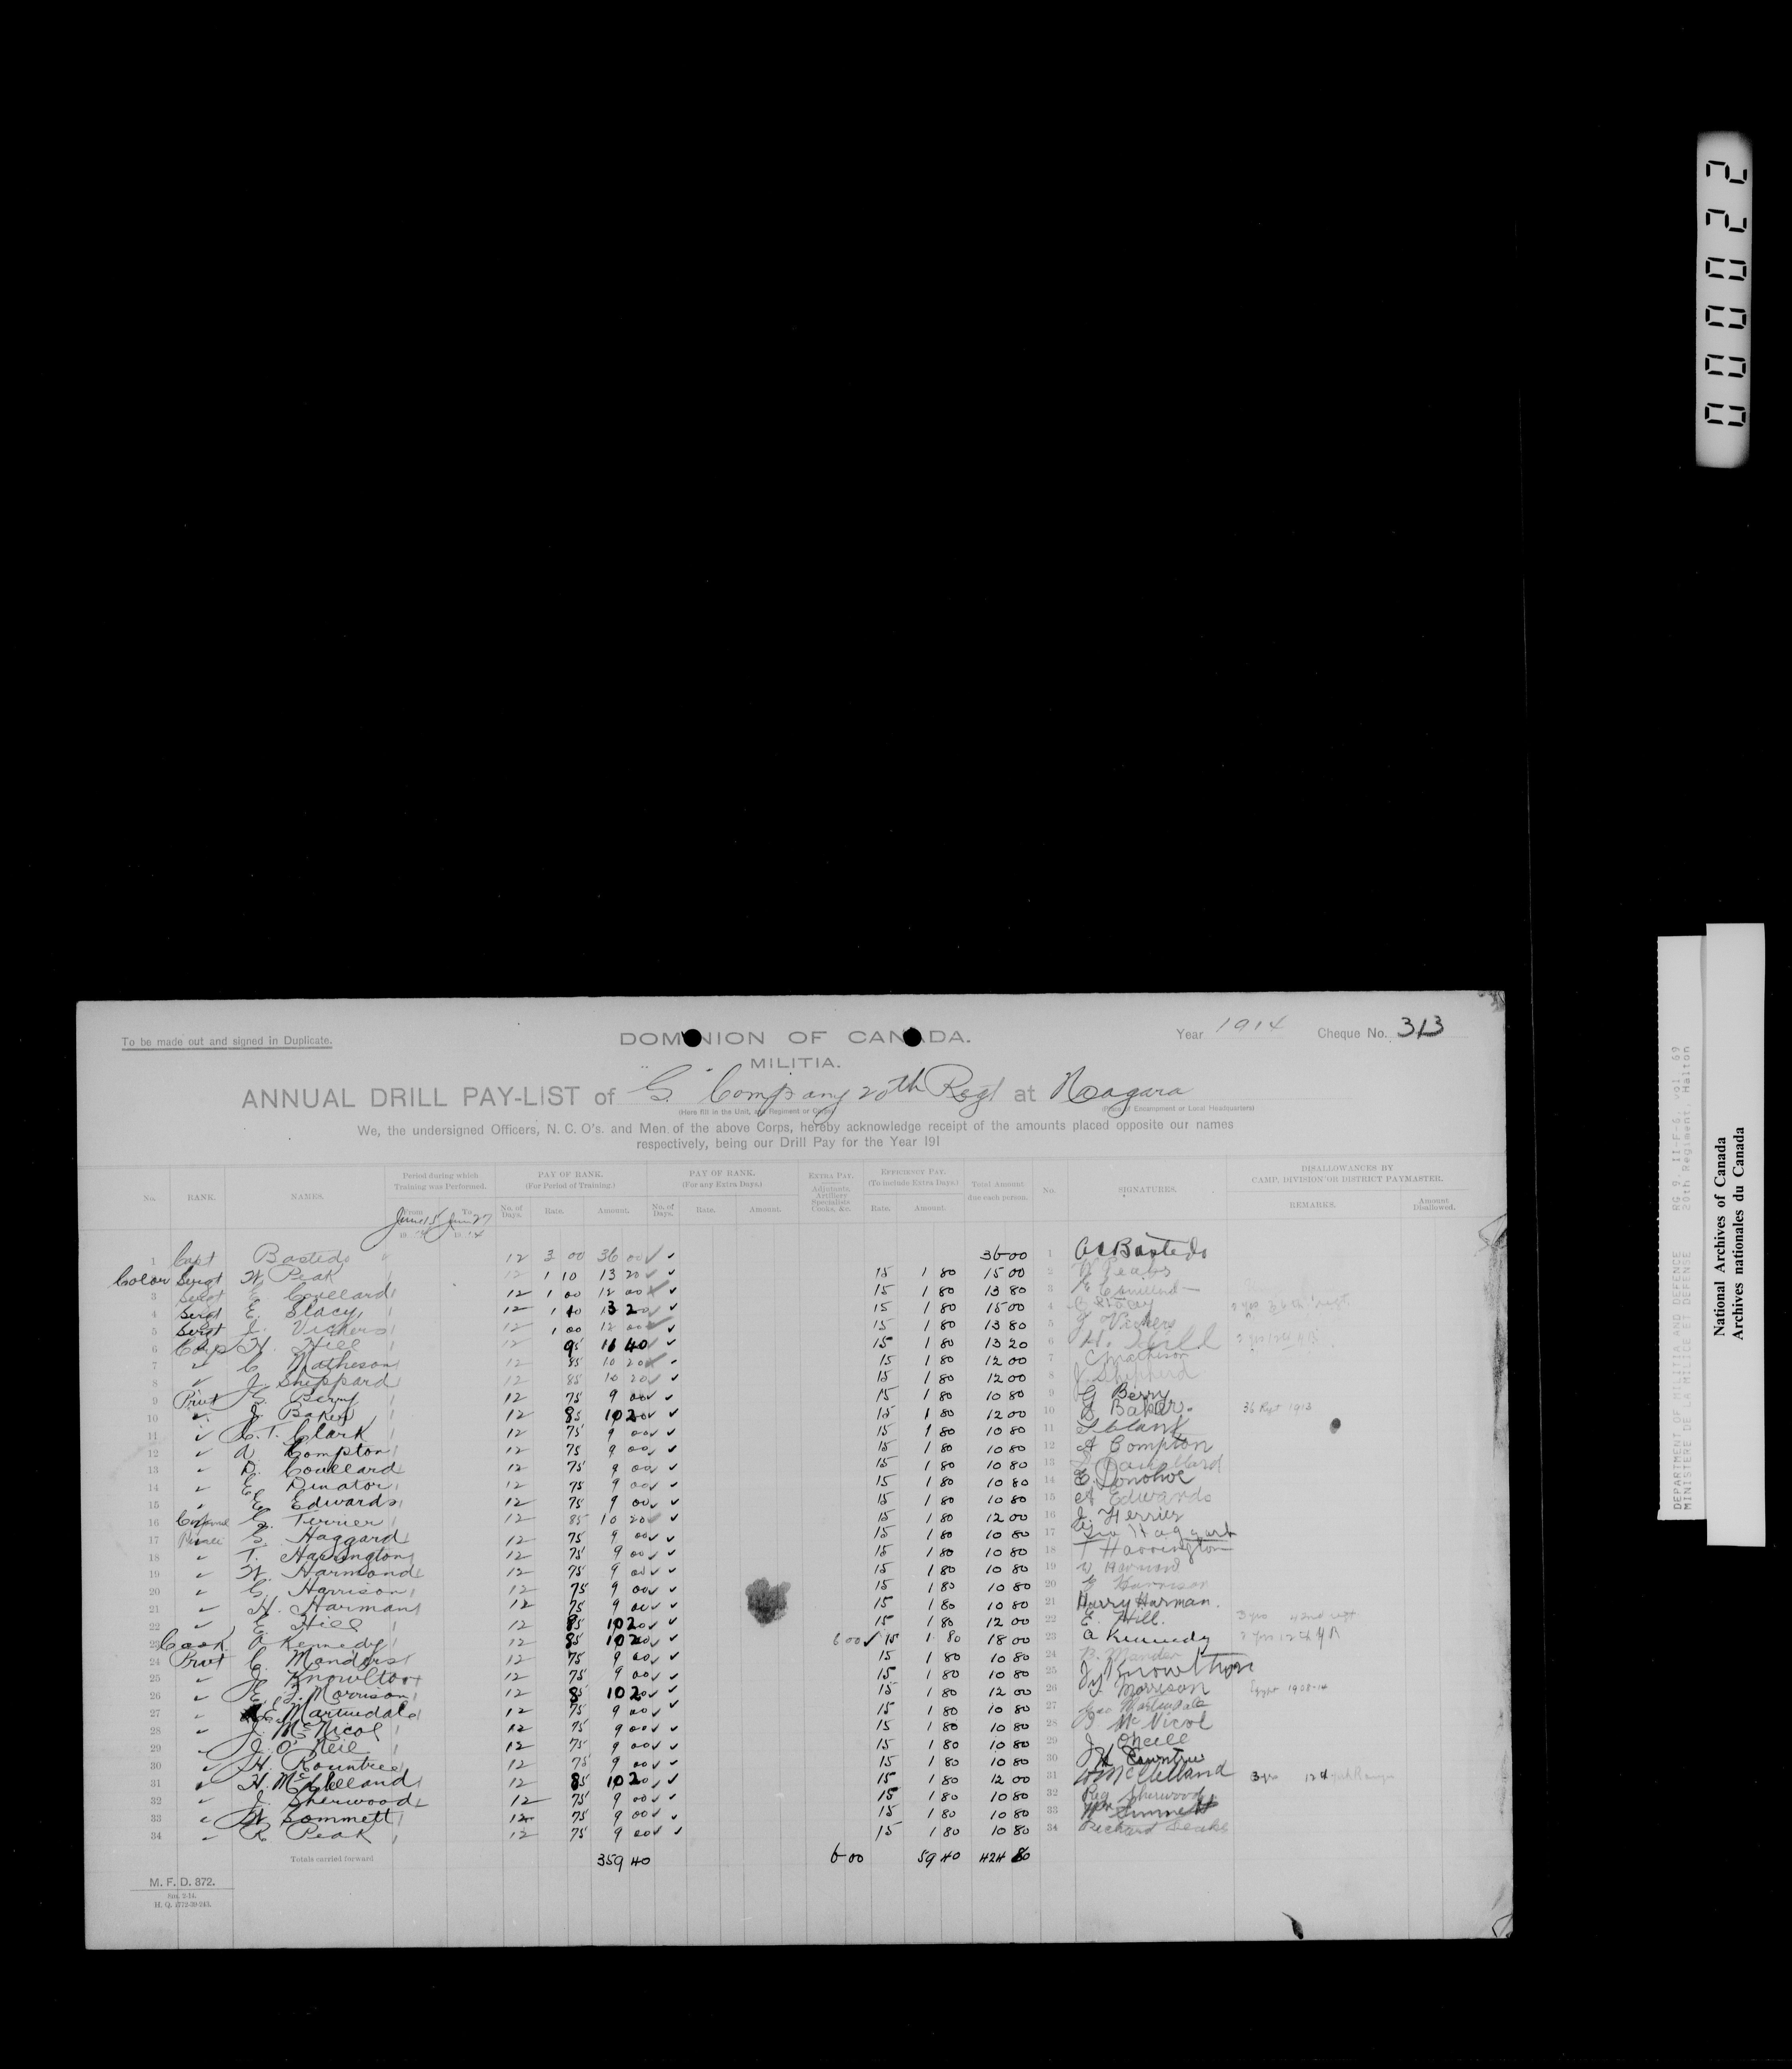 To be made out and signed in Duplicate.
DOMINION OF CANADA.
Year 1914 Cheque No. 313
MILITIA.
ANNUAL DRILL PAY-LIST of "G" Company 20th Regt at Niagara
(Here fill in the Unit, Regiment or Corps) (Place of Encampment or Local Headquarters)
We, the undersigned Officers, N. C. O's. and Men of the above Corps, hereby acknowledge receipt of the amounts placed opposite our names
respectively, being our Drill Pay for the Year 191
No. RANK. NAMES. Period during which Training was Performed. From June 15 14 To June 27 14 PAY OF RANK. (For Period of Training.) No. of Days. Rate. Amount. PAY OF RANK. (For any Extra Days.) No. of Days. Rate. Amount. EXTRA PAY. Adjutants, Artillery Specialists Cooks, &c. EFFICIENCY PAY. (To include Extra Days.) Rate. Amount. Total Amount due each person. No. SIGNATURES. DISALLOWANCES BY CAMP, DIVISION OR DISTRICT PAYMASTER. REMARKS. Amount Disallowed.
1 Capt Bastedo 12 3 00 36 00 36 00 1 Bastedo
Color Sergt W. Peak 12 1 10 13 20 15 1 80 15 00 2
3 Sergt Coullard 12 1 00 12 00 15 1 80 13 80 3
4 Sergt E. Stacy 12 1 10 13 20 15 1 80 15 00 4 Stacy
5 Sergt J. Vickers 12 1 00 12 00 15 1 80 13 80 5 J Vickers
6 Corp H. Hill 12 95 11 40 15 1 80 13 20 6 H. Hill
7 " C. Matheson 12 85 10 20 15 1 80 12 00 7 C Matheson
8 " J. Sheppard 12 85 10 20 15 1 80 12 00 8 J. Shepherd
9 Privt G. Berry 12 75 9 00 15 1 80 10 80 9 G Berry
10 " Baker 12 85 10 20 15 1 80 12 00 10 Baker. 36 Regt 1913
11 " T. Clark 12 75 9 00 15 1 80 10 80 11
12 " A. Compton 12 75 9 00 15 1 80 10 80 12 A Compton
13 " D. Coullard 12 75 9 00 15 1 80 10 80 13
14 " E. 12 75 9 00 15 1 80 10 80 14 E. Donohoe
15 " Edwards 12 75 9 00 15 1 80 10 80 15 A Edwards
16 Corporal Ferrier 12 85 10 20 15 1 80 12 00 16 Ferrier
17 Private G. Haggard 12 75 9 00 15 1 80 10 80 17 Geo Haggart
18 " T. Harrington 12 75 9 00 15 1 80 10 80 18 T Harrington
19 " W. Harmond 12 75 9 00 15 1 80 10 80 19 W
20 " G. Harrison 12 75 9 00 15 1 80 10 80 20 G Harrison
21 " H. Harman 12 75 9 00 15 1 80 10 80 21 Harry Harman.
22 " E. Hill 12 85 10 20 15 1 80 12 00 22 E. Hill. 3 yrs 42nd regt
23 Cook A Kennedy 12 85 10 20 6 00 15 1 80 18 00 23 A Kennedy 2 yrs 12th YR
24 Privt C. Manders 12 75 9 00 15 1 80 10 80 24 Mander
25 " J. Knowlton 12 75 9 00 15 1 80 10 80 25 J Knowlton
26 " Morrison 12 85 10 20 15 1 80 12 00 26 Morrison Egypt 1908-14
27 " Martindale 12 75 9 00 15 1 80 10 80 27 Geo Martindale
28 " J. McNicol 12 75 9 00 15 1 80 10 80 28 J. McNicol
29 " J. O'Neil 12 75 9 00 15 1 80 10 80 29 J. ONeill
30 " H. Rountree 12 75 9 00 15 1 80 10 80 30 H Rountree
31 " H. McClelland 12 85 10 20 15 1 80 12 00 31 McClelland 3 yrs 12th York Rangers
32 " J. Sherwood 12 75 9 00 15 1 80 10 80 32 Reg Sherwood
33 " W Sommett 12 75 9 00 15 1 80 10 80 33 Wm
34 " R. Peak 12 75 9 00 15 1 80 10 80 34 Richard
Totals carried forward 359 40 6 00 59 40 424 80
M. F. D. 872.
H. Q. 1772-39-243.
000022
DEPARTMENT OF MILITIA AND DEFENCE RG 9, II-F-6, vol. 69
MINISTERE DE LA MILICE ET DEFENSE 20th Regiment, Halton
National Archives of Canada
Archives nationales du Canada